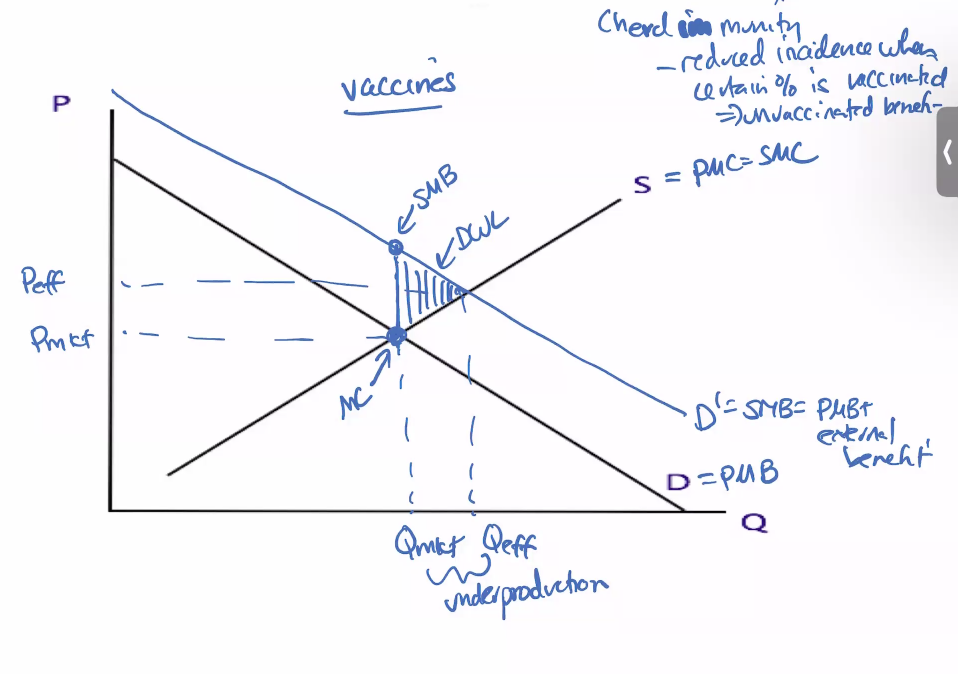 Cherd immunity
- reduced incidence when
certain % is vaccinated
⇒) unvaccinated benefi-
vaccines
P
S = PMC = SMC
SMB
DWL
Peff
Pmkt
MC
D' = SMB = PMB +
external
benefit
D = PMB
Q
Qmkt Qeff
underproduction